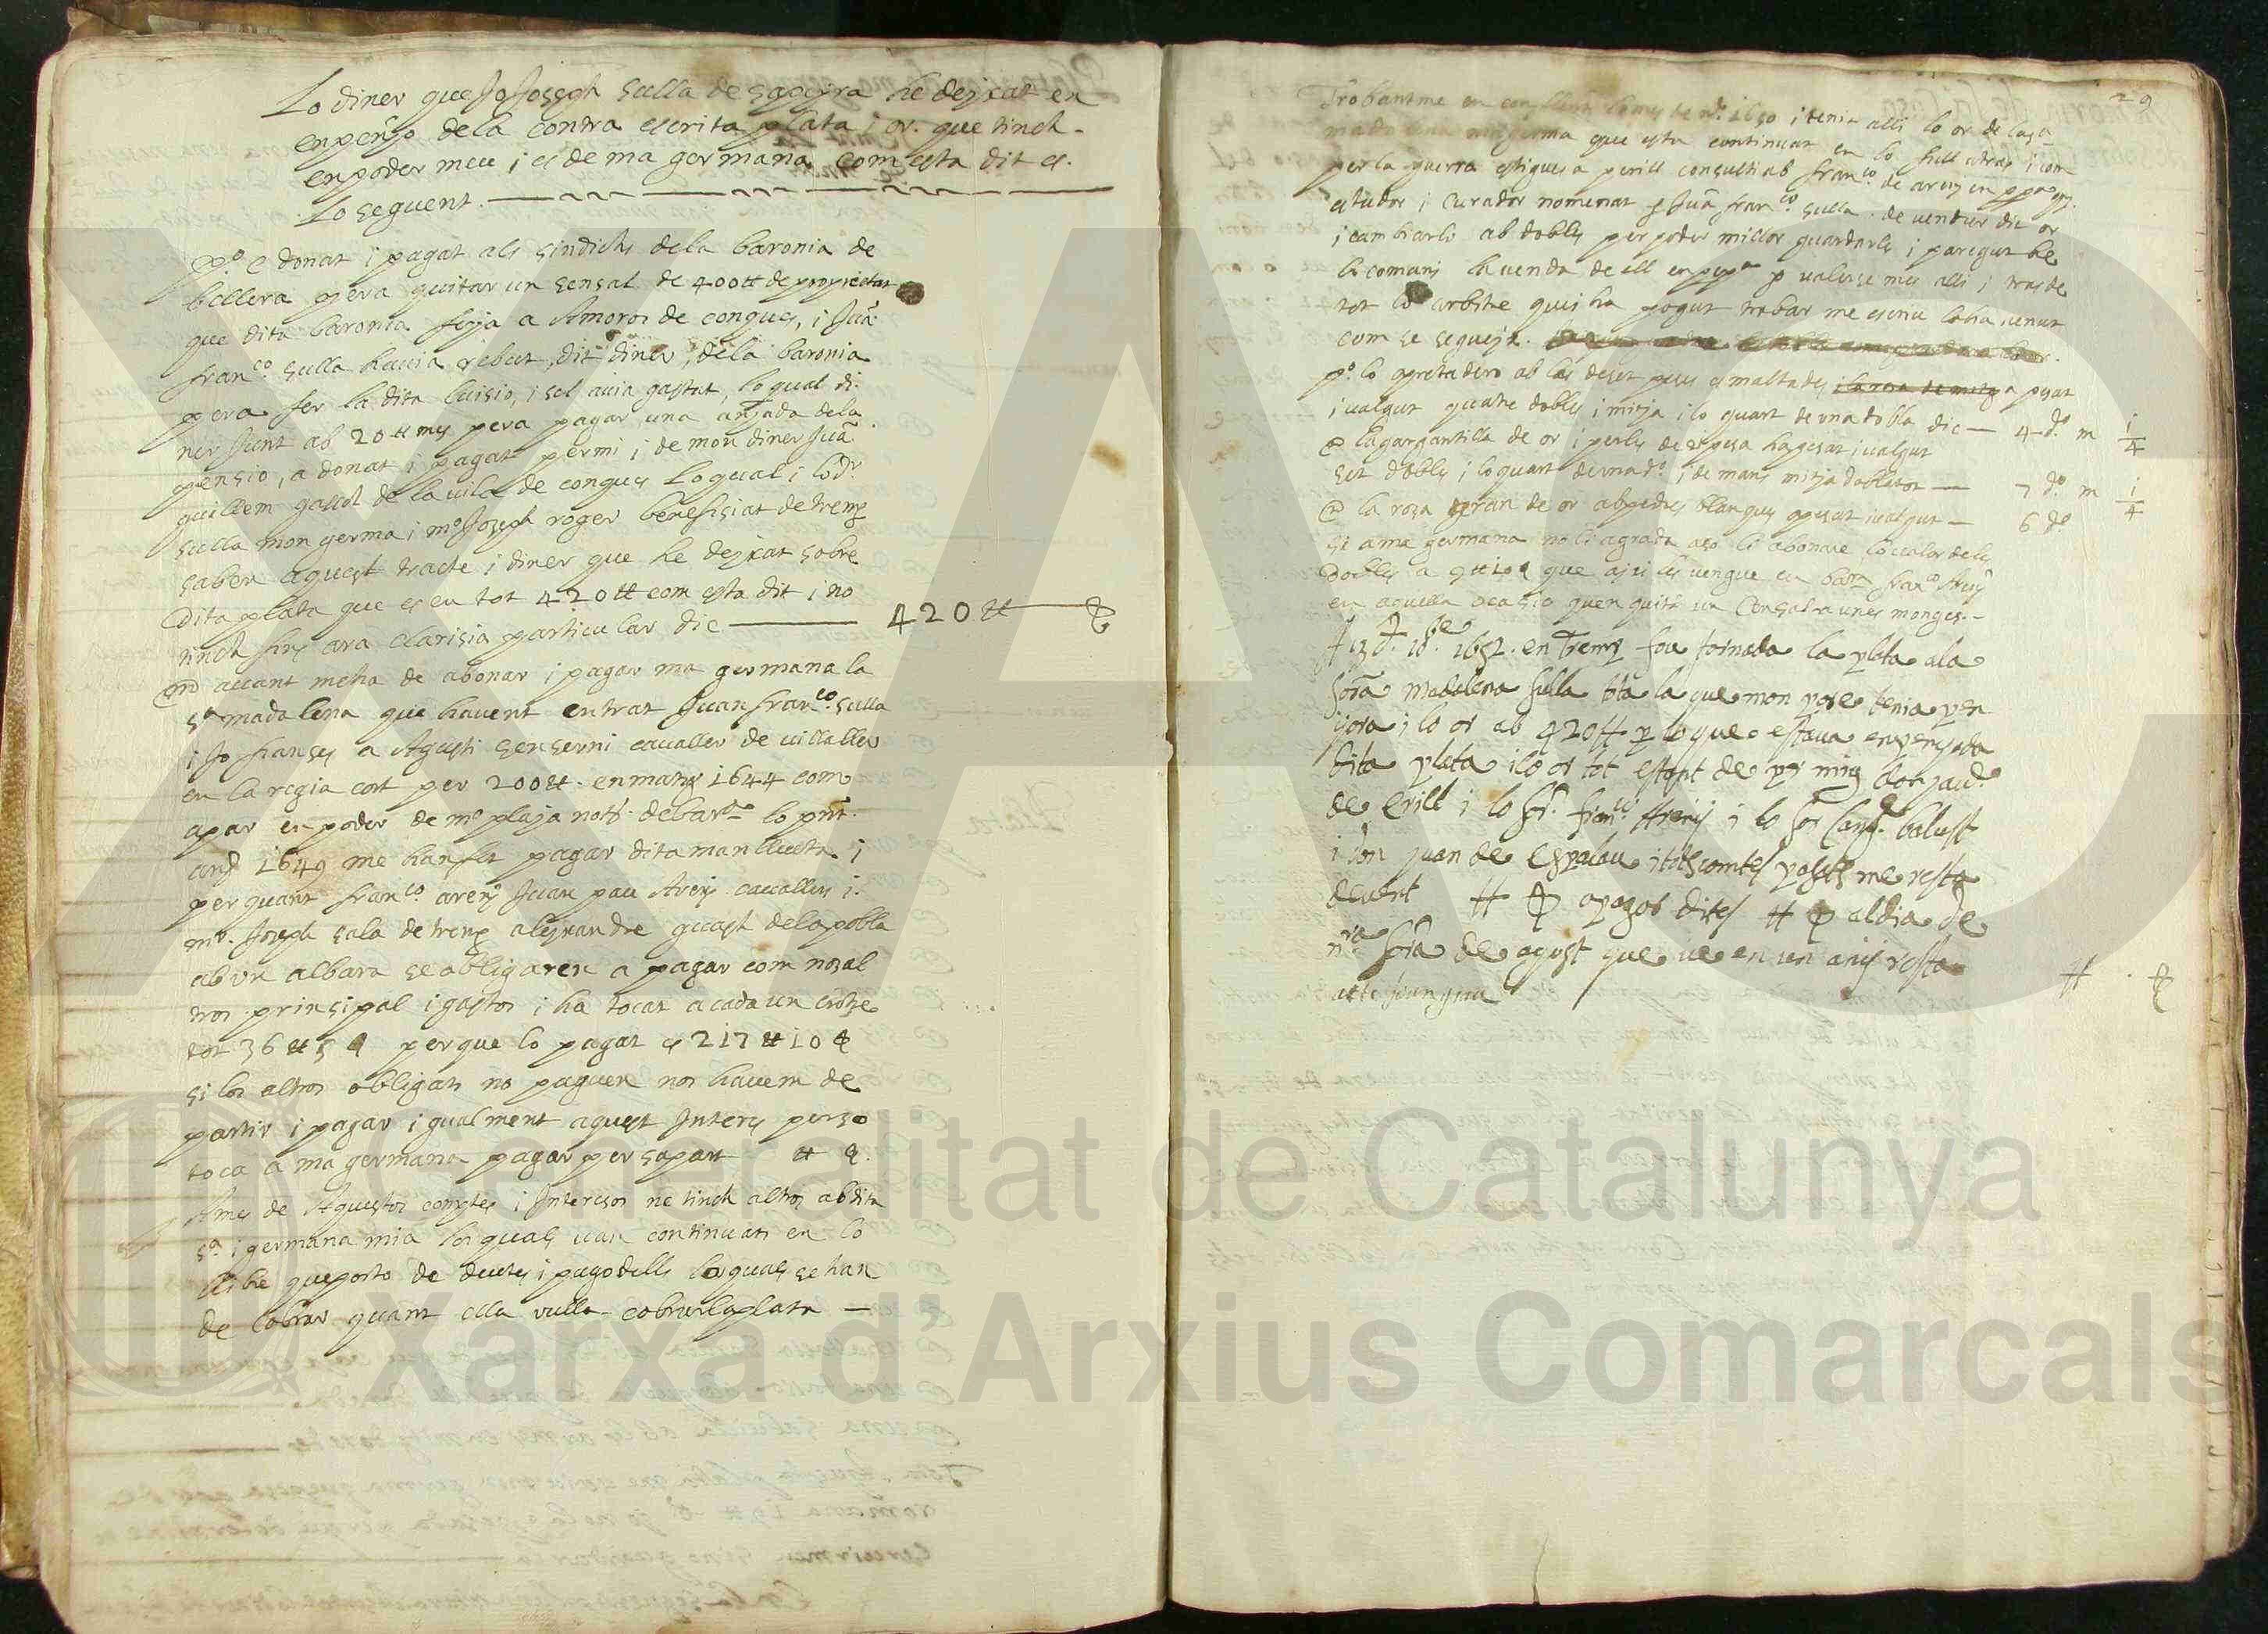 Lo diner que Jo Joseph sulla de sapeyra he deyxat en
enpenyo dela contra escrita plata i or. que tinch
en poder meu i es de ma germana com esta dit es.
Lo seguent.
pº. e donat i pagat als sindichs dela baronia de
bellera pera quitar un sensal de 400 ₶ de propietat
que dita baronia feya a Amoros de conques, i Juã
franco. sulla havia rebut dit diner, dela baronia
pera fer la dita luisio, i sel avia gastat, lo qual di
ner Junt ab 20 ₶ mes pera pagar una anyada dela
pensio, a donat i pagat permi i de mon diner Juã
guillem gassol de la vila de conques Lo qual i lo dr.
sulla mon germa i mo. Joseph roger benefisiat de tremp
saben aquest tracte i diner que he deyxat sobre
dita plata que es en tot 420 ₶ com esta dit i no
tinch fins ara clarisia particular dic 420 ₶
avant meha de abonar i pagar ma germana la
sa. madalena que havent entrat Juan franco. sulla
i Jo fianses a Agusti senserni cavaller de vilaller
en la regia cort per 200 ₶. en mars 1644 com
apar en poder de mo. pluja notʳ. de barna. lo pñt.
any 1649 me han fet pagar dita manlleuta i
per quant franco. areny Juan pau Areny cavallers i
mr. Joseph sala de tremp alexandre guast dela pobla
ab un albara se obligaren a pagar com nosal
tros prinsipal i gastos i ha tocat a cada un entre
tot 36 ₶ 5 s perque lo pagat es 217 ₶ 10 s
si los altros obligats no paguen nos havem de
partir i pagar igualment aquest Interes perso
toca a ma germana pagar per sa part ₶ s.
A mes de Aquestos comptes i Interesos ne tinch altros ab dita
sa. i germana mia los quals van continuats en lo
llibre que porto de deutes i pago dells los quals se han
de Cobrar quant ella vulla cobrar la plata
29
Trobantme en conflent lo mes de 1650 i tenia alli lo or de la sa.
madalena ma germa que esta continuat en lo full atras i com
per la guerra estigues a perill consulti ab franco. de areny en
tudor i Curador nomenat p Juã franco. sulla. de vendrer dit or
i cambiarlo ab dobles per poder millor guardarles i paregut be
li comani la venda de ell en p valerse mes alli i tras de
tot lo arbitre quis ha pogut trobar me escriu lo ha venut
com se segueix.
pº. lo apretadero ab las deset peses esmaltades a pesat
i valgut quatre dobles i mitja i lo quart de una dobla dic 4 do. m 1/4
la gargantilla de or i perles de pesa ha pesat i valgut
set dobles i lo quart de una do. i de mans mitja dobla tot 7 do. m 1/4
la rosa gran de or ab pedres blanques a pesat i valgut 6 do
si a ma germana no li agrada aso li abonare lo valor dels
dobles a 5 ₶ 10 s que axi es vengue en barna. franco. Areny
en aquella ocasio quen quita un Censal a unes monges.
1652. en Tremp fou tornada la plata a la
sora. Madalena sulla tota la que mon pare tenia pen
yora i lo or ab 420 ₶ p lo que estava enpenyada
dita plata i lo or tot estant de per mig don
de Erill i lo sr. franco. Areny i lo sor balust
i don Juan de Espalau i tots comtes pasats me resta
devent ₶ s a pagar dites ₶ s al dia de
nra sra de agost que ve en un any resta
₶ s